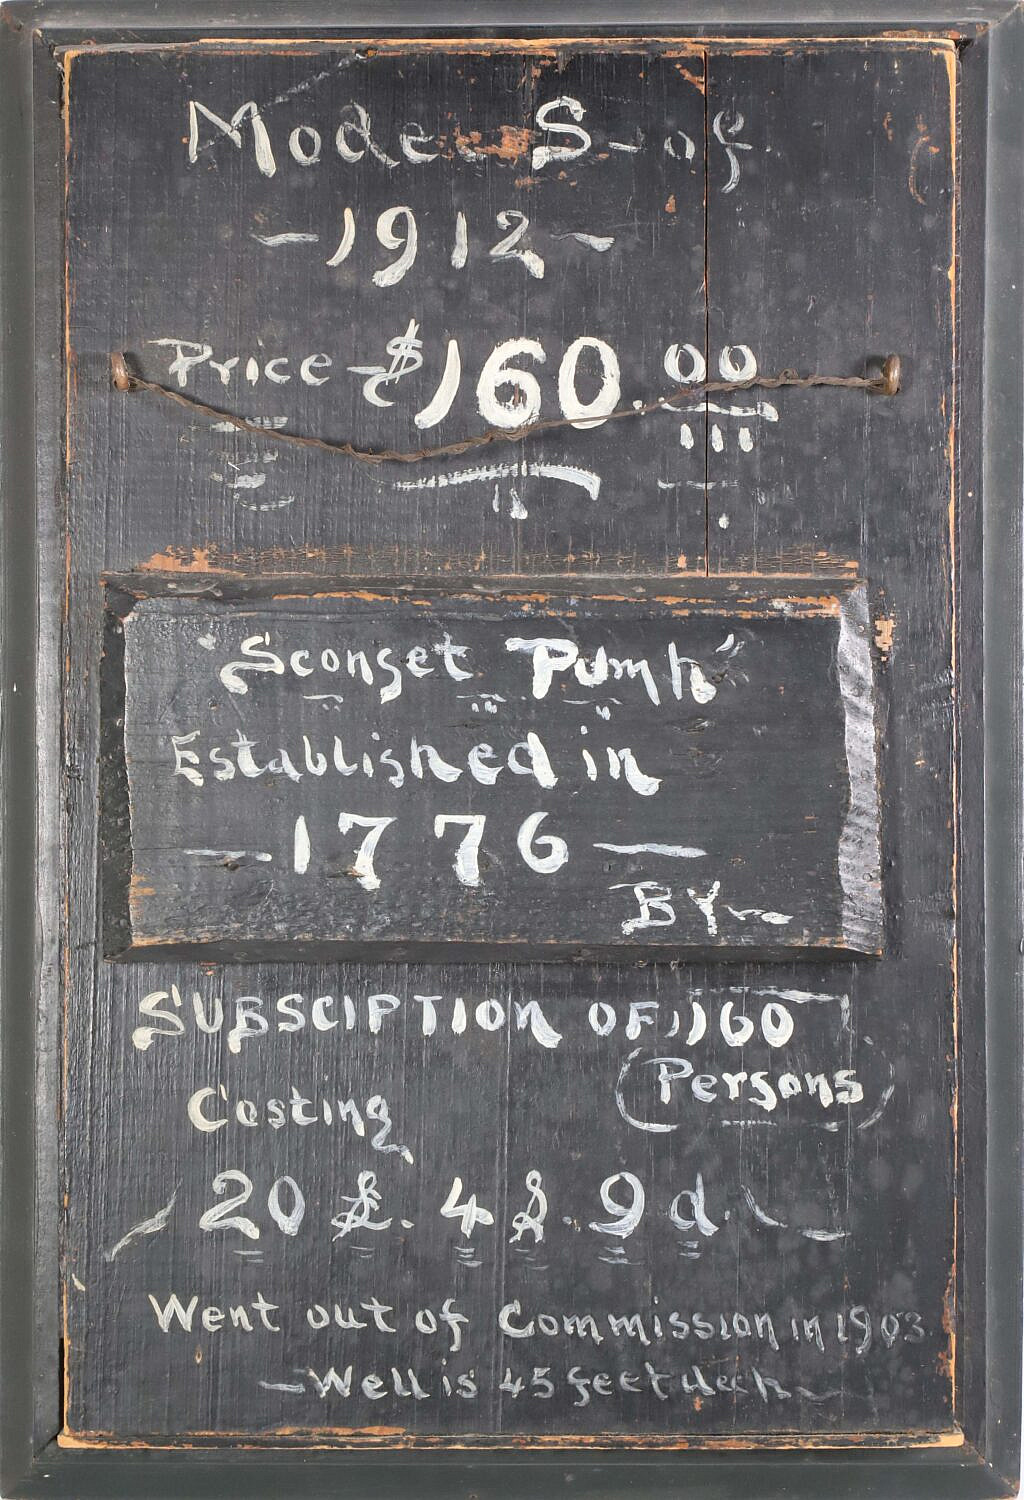 Model S - of
- 1912 -
Price - $160.00
"Sconset Pump"
Established in
- 1776 -
BY -
SUBSCIPTION OF, 160
(Persons)
Costing
20 £. 4 s. 9 d.
Went out of Commission in 1903
- Well is 45 feet deep -